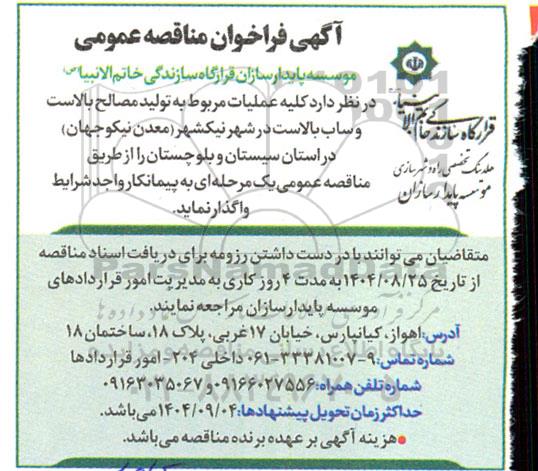 آگهی فراخوان مناقصه عمومی
موسسه پایدارسازان قرارگاه سازندگی خاتم الانبیا(ص)
در نظر دارد کلیه عملیات مربوط به تولید مصالح بالاست
و ساب بالاست در شهر نیکشهر (معدن نیکوجهان)
در استان سیستان و بلوچستان را از طریق
مناقصه عمومی یک مرحله‌ای به پیمانکار واجد شرایط
واگذار نماید.
قرارگاه سازندگی خاتم الانبیاء
هلدینگ تخصصی راه و شهرسازی
موسسه پایدارسازان
متقاضیان می توانند با در دست داشتن رزومه برای دریافت اسناد مناقصه
از تاریخ ۱۴۰۴/۰۸/۲۵ به مدت ۴ روز کاری به مدیریت امور قراردادهای
موسسه پایدارسازان مراجعه نمایند
آدرس: اهواز، کیانپارس، خیابان ۱۷ غربی، پلاک ۱۸، ساختمان ۱۸
شماره تماس: ۹-۳۳۳۸۱۰۰۷-۰۶۱ داخلی ۲۰۴- امور قراردادها
شماره تلفن همراه: ۰۹۱۶۶۰۲۷۵۵۶ و ۰۹۱۶۳۰۳۵۰۶۷
حداکثر زمان تحویل پیشنهادها: ۱۴۰۴/۰۹/۰۴ می باشد.
هزینه آگهی بر عهده برنده مناقصه می باشد.
ParsNamadData